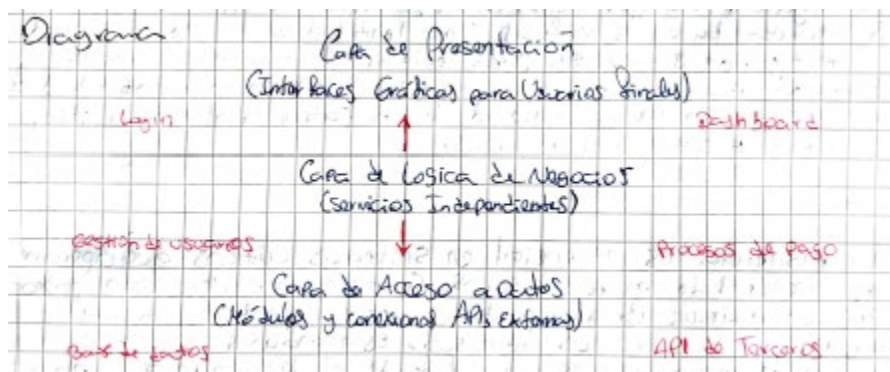 Diagrama
Capa de Presentación
(Interfaces Gráficas para Usuarios finales)
Login Dashboard
Capa de Logica de Negocios
(servicios Independientes)
Gestión de usuarios Procesos de pago
Capa de Acceso a Datos
(Módulos y conexiones APIs Externas)
Base de datos API de Terceros